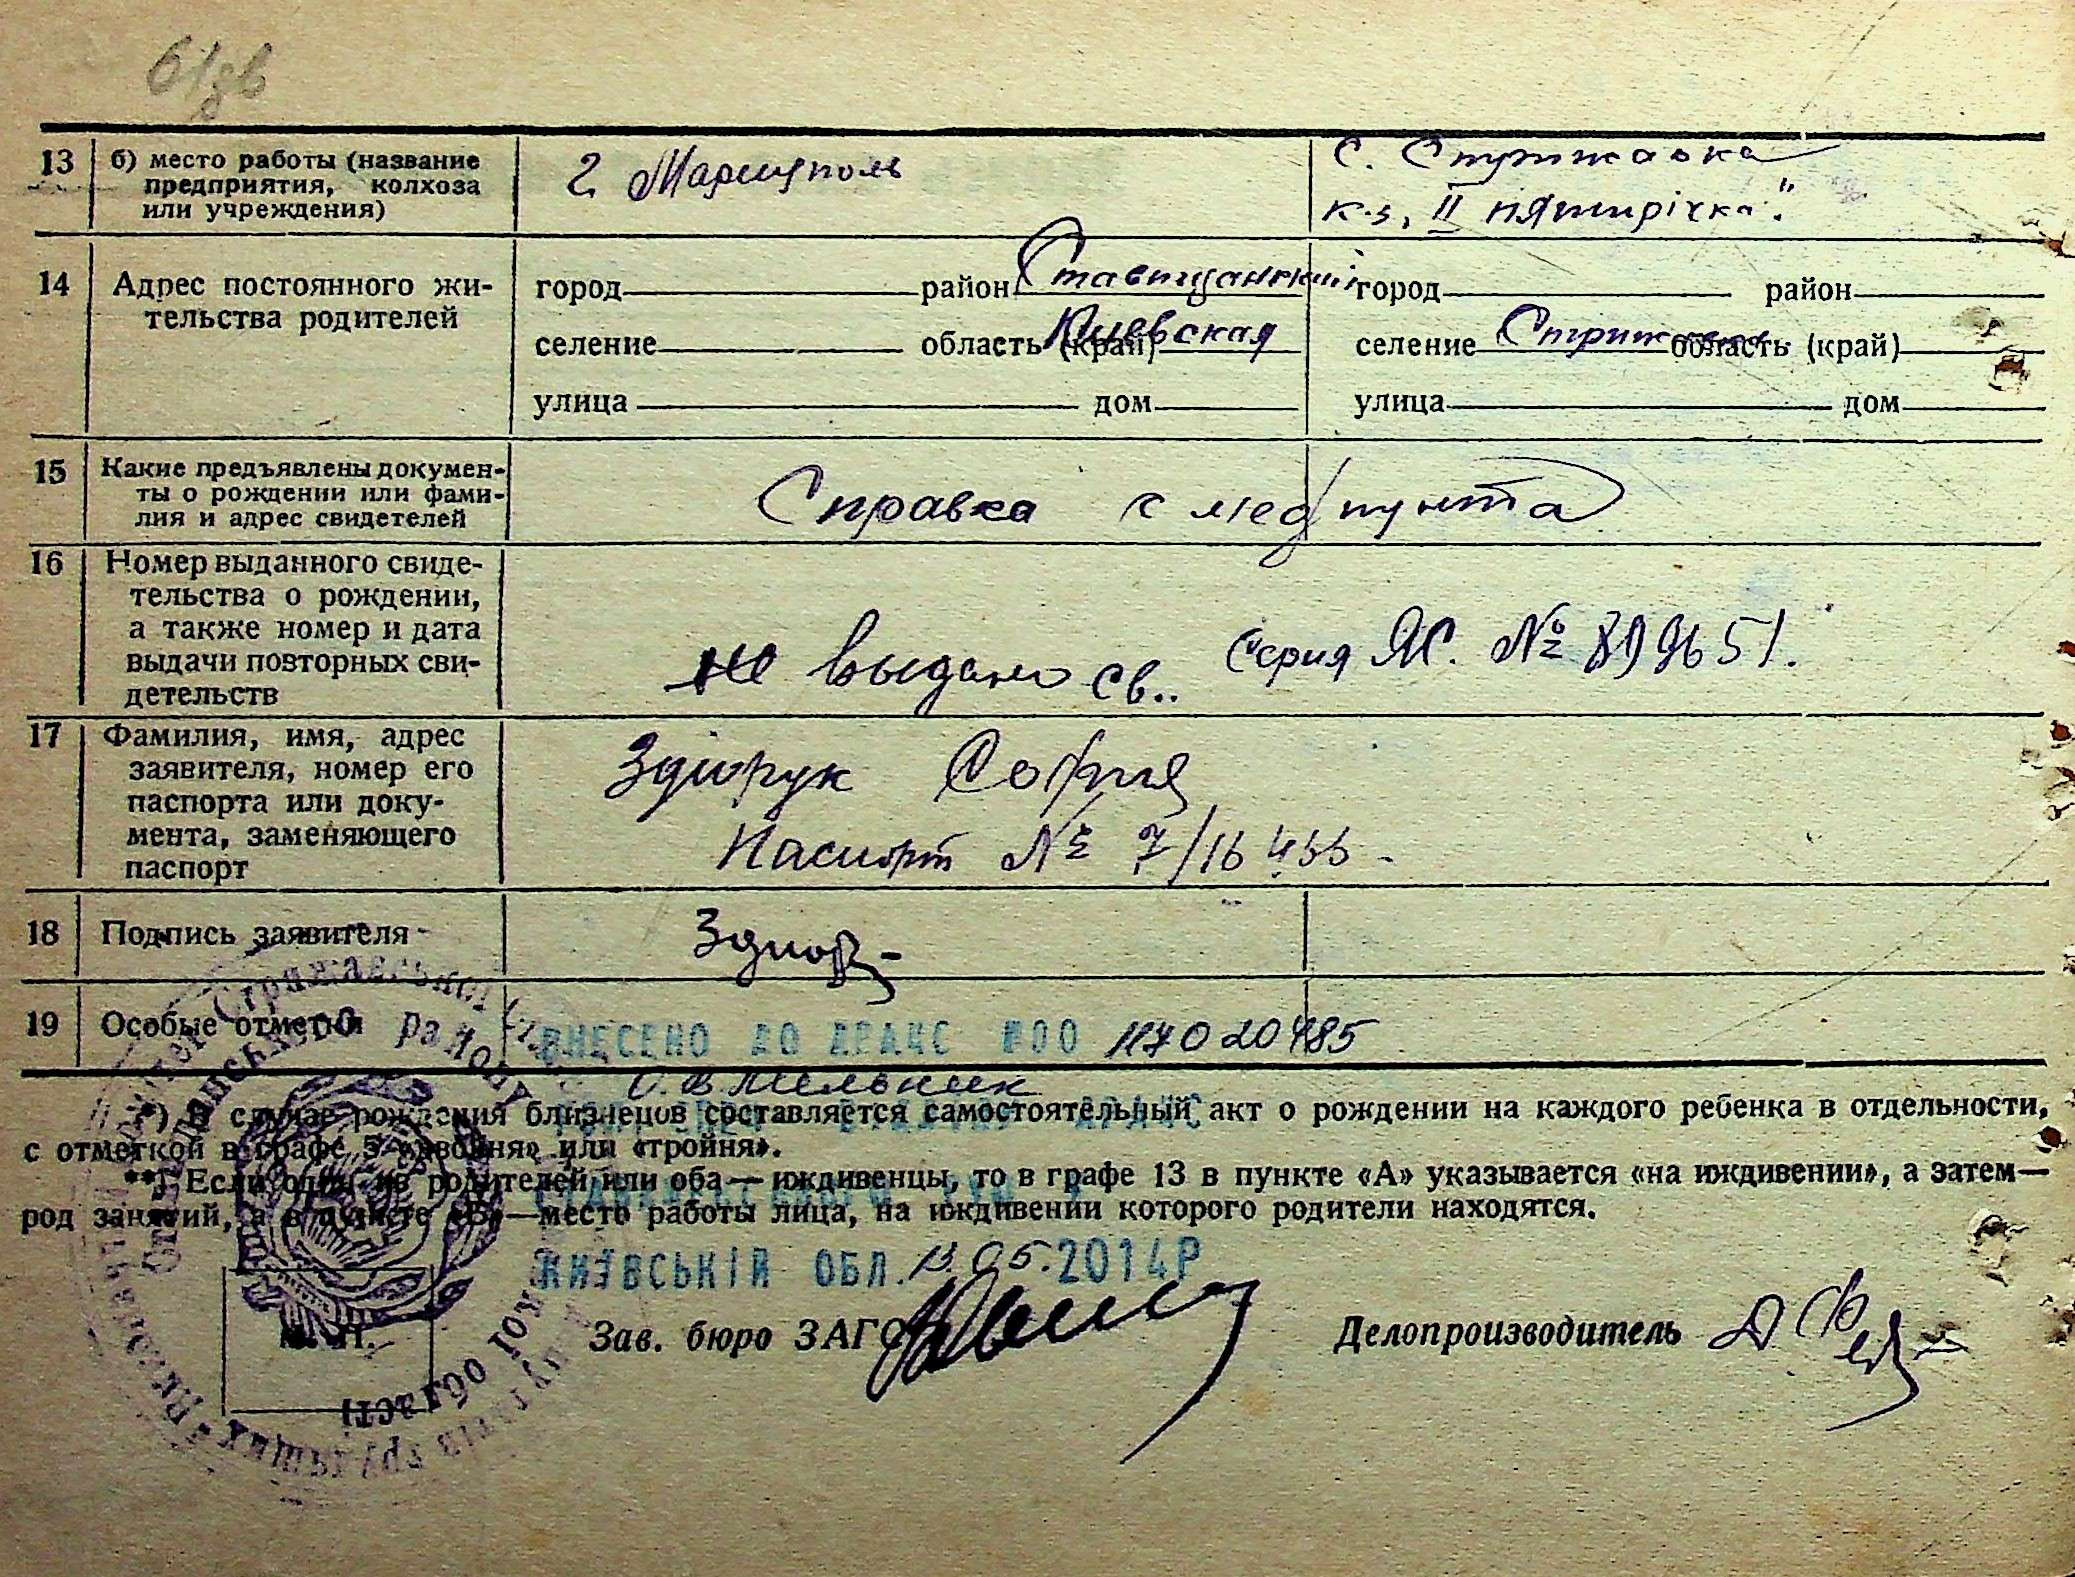 61зв
13 б) место работы (название
предприятия, колхоза
или учреждения)
г Мариуполь
с. Стрижавка
к-з, II пятирічка".
14 Адрес постоянного жи-
тельства родителей
город район Ставищанский
селение область (край) Киевская
улица дом
город район
селение Стрижавка область (край)
улица дом
15 Какие предъявлены докумен-
ты о рождении или фами-
лия и адрес свидетелей
Справка с медпункта
16 Номер выданного свиде-
тельства о рождении,
а также номер и дата
выдачи повторных сви-
детельств
не выдано св.. Серия ЯС. №
17 Фамилия, имя, адрес
заявителя, номер его
паспорта или доку-
мента, заменяющего
паспорт
Здіорук София
Паспорт № 7/16
18 Подпись заявителя
Здиор
19 Особые отметки
ВНЕСЕНО ДО ДРАЦС №00 117020485
О.В Мельник
*) В случае рождения близнецов составляется самостоятельный акт о рождении на каждого ребенка в отдельности,
с отметкой в графе 5 «двойня» или «тройня».
**) Если один из родителей или оба—иждивенцы, то в графе 13 в пункте «А» указывается «на иждивении», а затем—
род занятий, а в пункте «Б»—место работы лица, на иждивении которого родители находятся.
КИЇВСЬКІЙ ОБЛ. 13.05.2014Р
М. П.
Зав. бюро ЗАГС
Делопроизводитель